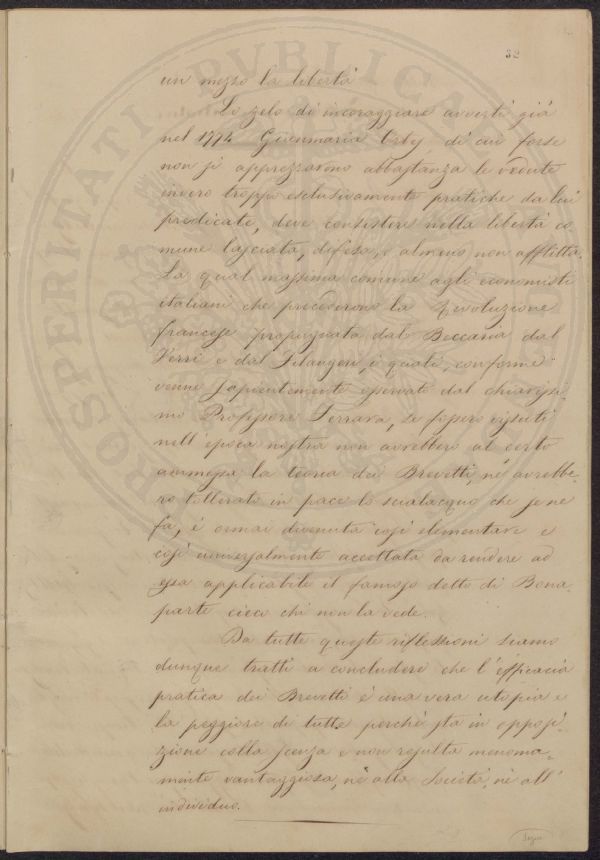 32
un mezzo la libertà
Lo zelo di incoraggiare avvertì già
nel 1774 Gianmaria Ortes di cui forse
non si apprezzarono abbastanza le vedute
invero troppo esclusivamente pratiche da lui
predicate, deve consistere nella libertà co
mune lasciata, difesa, e almeno non afflitta.
La qual massima comune agli economisti
italiani che precederono la Rivoluzione
francese propugnata dal Beccaria dal
Verri e dal Filangeri i quali, conforme
venne sapientemente osservato dal chiarissi-
mo Professore Ferrara, se fossero vissuti
nell'epoca nostra non avrebbero al certo
ammessa la teoria dei Brevetti, nè avrebbe-
ro tollerato in pace lo scialacquo che se ne
fa, è ormai divenuta così elementare e
così universalmente accettata da rendere ad
essa applicabile il famoso detto di Bona-
parte cieco chi non la vede.
Da tutte queste riflessioni siamo
dunque tratti a concludere che l'efficacia
pratica dei Brevetti è una vera utopia e
la peggiore di tutte perchè sta in opposi-
zione colla scenza e non resulta menoma-
mente vantaggiosa, nè alla Società, nè all'
individuo.
PROSPERITATI PVBLICAE